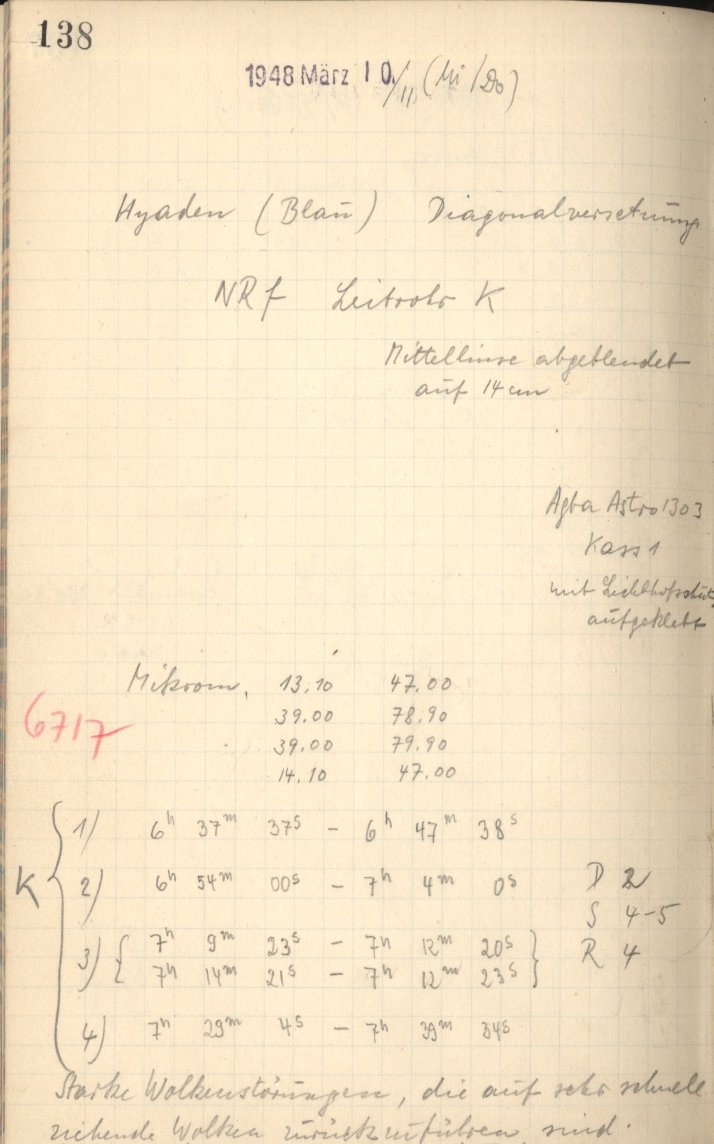 138
1948 März 10./11 (Mi/Do)
Hyaden (Blau) Diagonalversetzung
NRf Leitrohr K
Mittellinse abgeblendet
auf 14 cm
Agfa Astro 1303
Kass 1
mit Lichthofschutz
aufgeklebt
Mikrom. 13.10 47.00
39.00 78.90
39.00 79.90
14.10 47.00
6717
K
1) 6h 37m 37s - 6h 47m 38s
2) 6h 54m 00s - 7h 4m 0s
D 2
S 4-5
R 4
3) { 7h 9m 23s - 7h 12m 20s }
7h 14m 21s - 7h 12m 23s
4) 7h 29m 4s - 7h 39m 34s
Starke Wolkenstörungen, die auf sehr schnell
ziehende Wolken zurückzuführen sind.